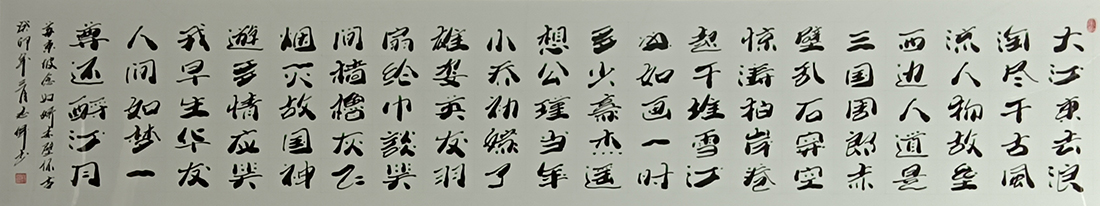 大江東去浪
淘尽千古風
流人物故垒
西边人道是
三国周郎赤
壁乱石穿空
惊涛拍岸卷
起千堆雪江
山如画一时
多少豪杰遥
想公瑾当年
小乔初嫁了
雄姿英发羽
扇纶巾談笑
间樯橹灰飞
烟灭故国神
遊多情应笑
我早生华发
人间如梦一
尊还酹江月
苏東坡念奴娇赤壁怀古
癸卯年